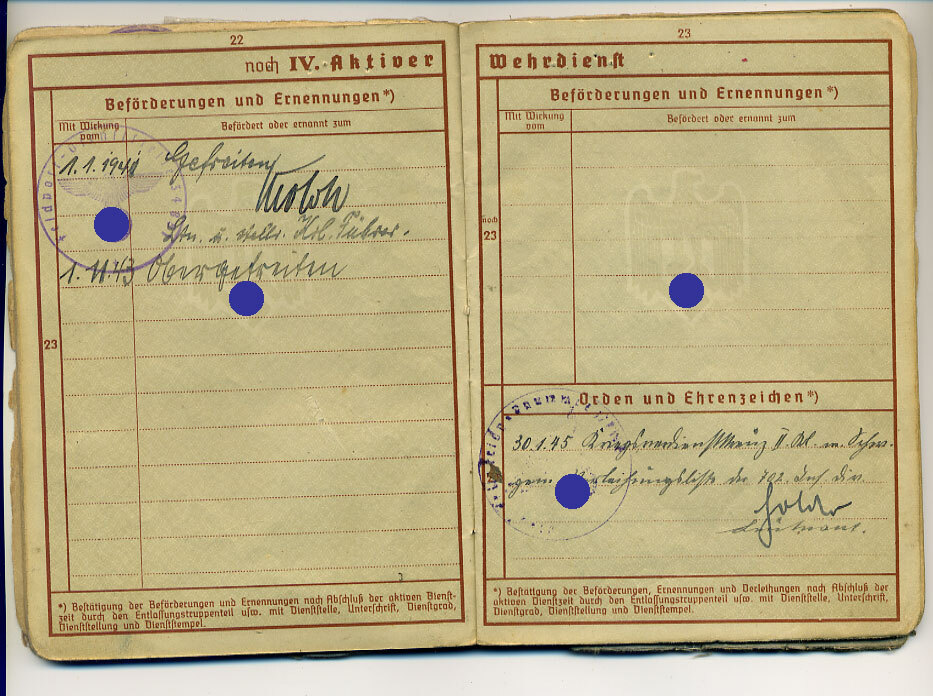 22
noch IV. Aktiver
Beförderungen und Ernennungen*)
Mit Wirkung vom
Befördert oder ernannt zum
1.1.1941 Gefreiten
Ltn. u. stellv. Führer.
1.11.43 Obergefreiten
23
*) Bestätigung der Beförderungen und Ernennungen nach Abschluß der aktiven Dienst-
zeit durch den Entlassungstruppenteil usw. mit Dienststelle, Unterschrift, Dienstgrad,
Dienststellung und Dienststempel.
23
Wehrdienst
Beförderungen und Ernennungen*)
Mit Wirkung vom
Befördert oder ernannt zum
noch
23
Orden und Ehrenzeichen*)
30.1.45 Kriegsverdienstkreuz II. Kl. m. Schw.
gem. Verleihungsliste der 702. Inf. Div.
Leutnant.
*) Bestätigung der Beförderungen, Ernennungen und Verleihungen nach Abschluß der
aktiven Dienstzeit durch den Entlassungstruppenteil usw. mit Dienststelle, Unterschrift,
Dienstgrad, Dienststellung und Dienststempel.